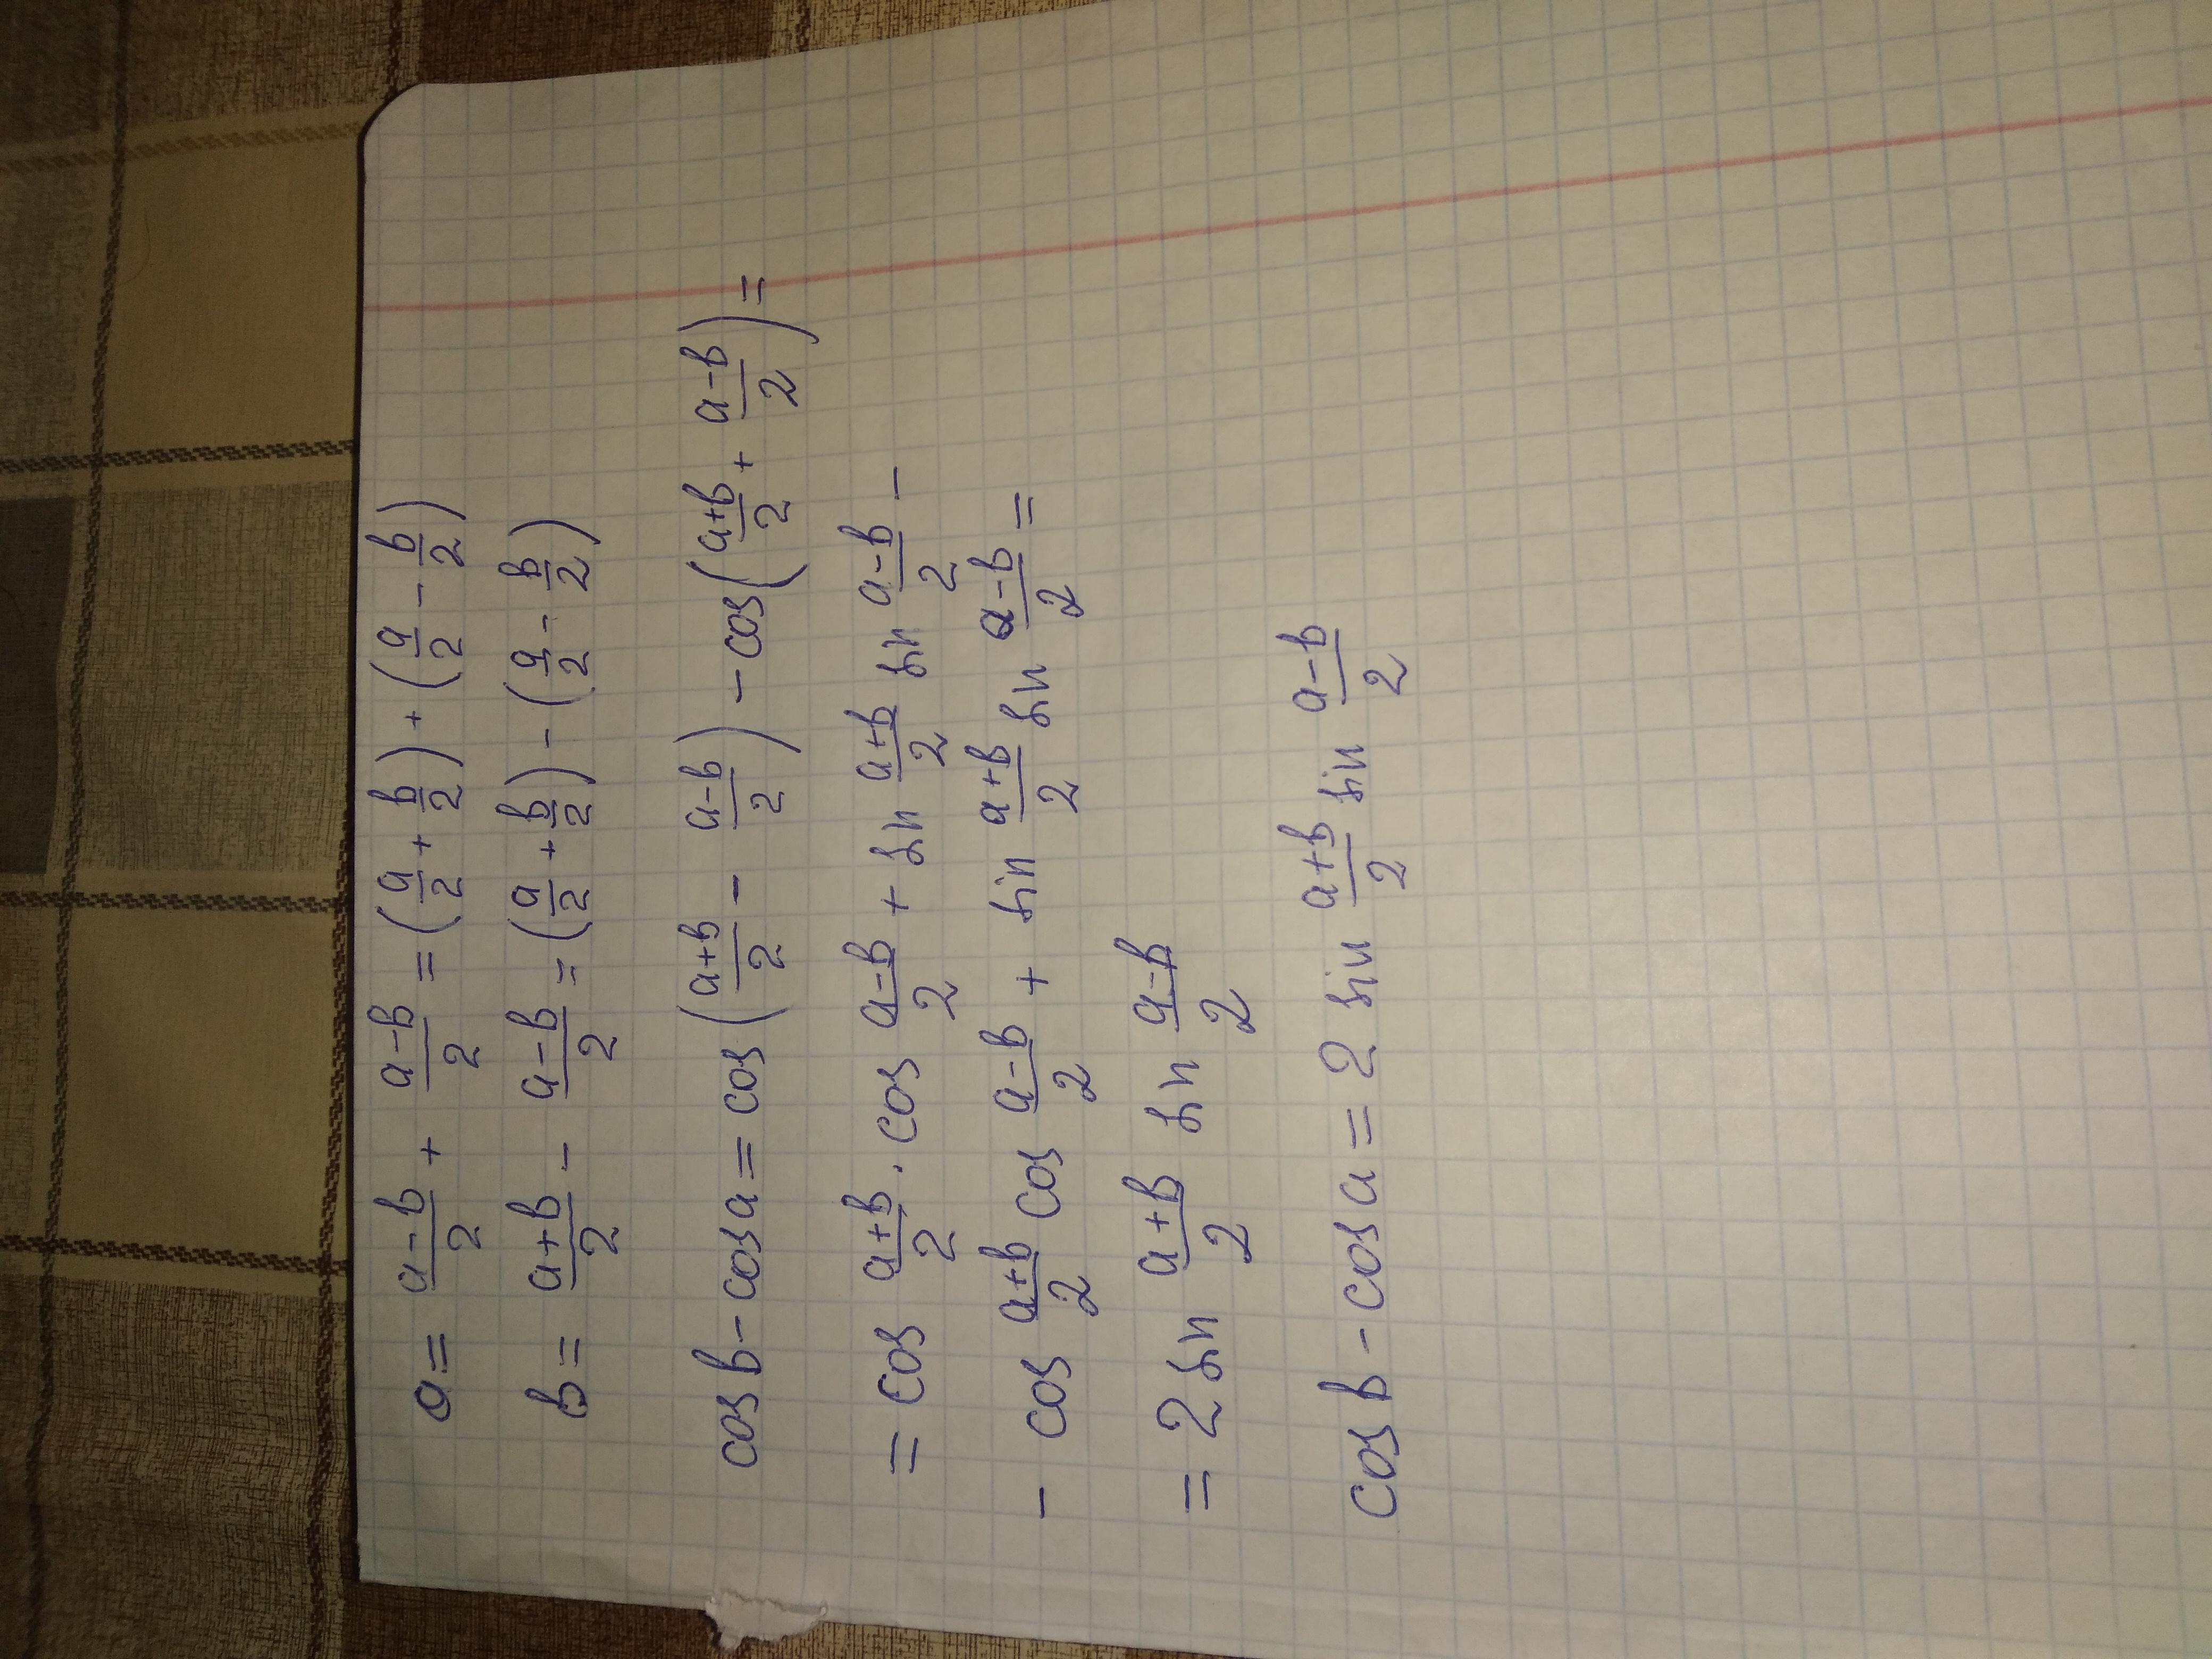 a = \frac{a-b}{2} + \frac{a-b}{2} = (\frac{a}{2} + \frac{b}{2}) + (\frac{a}{2} - \frac{b}{2})
b = \frac{a+b}{2} - \frac{a-b}{2} = (\frac{a}{2} + \frac{b}{2}) - (\frac{a}{2} - \frac{b}{2})
cos b - cos a = cos(\frac{a+b}{2} - \frac{a-b}{2}) - cos(\frac{a+b}{2} + \frac{a-b}{2}) =
= cos \frac{a+b}{2} · cos \frac{a-b}{2} + sin \frac{a+b}{2} sin \frac{a-b}{2} -
- cos \frac{a+b}{2} cos \frac{a-b}{2} + sin \frac{a+b}{2} sin \frac{a-b}{2} =
= 2 sin \frac{a+b}{2} sin \frac{a-b}{2}
cos b - cos a = 2 sin \frac{a+b}{2} sin \frac{a-b}{2}